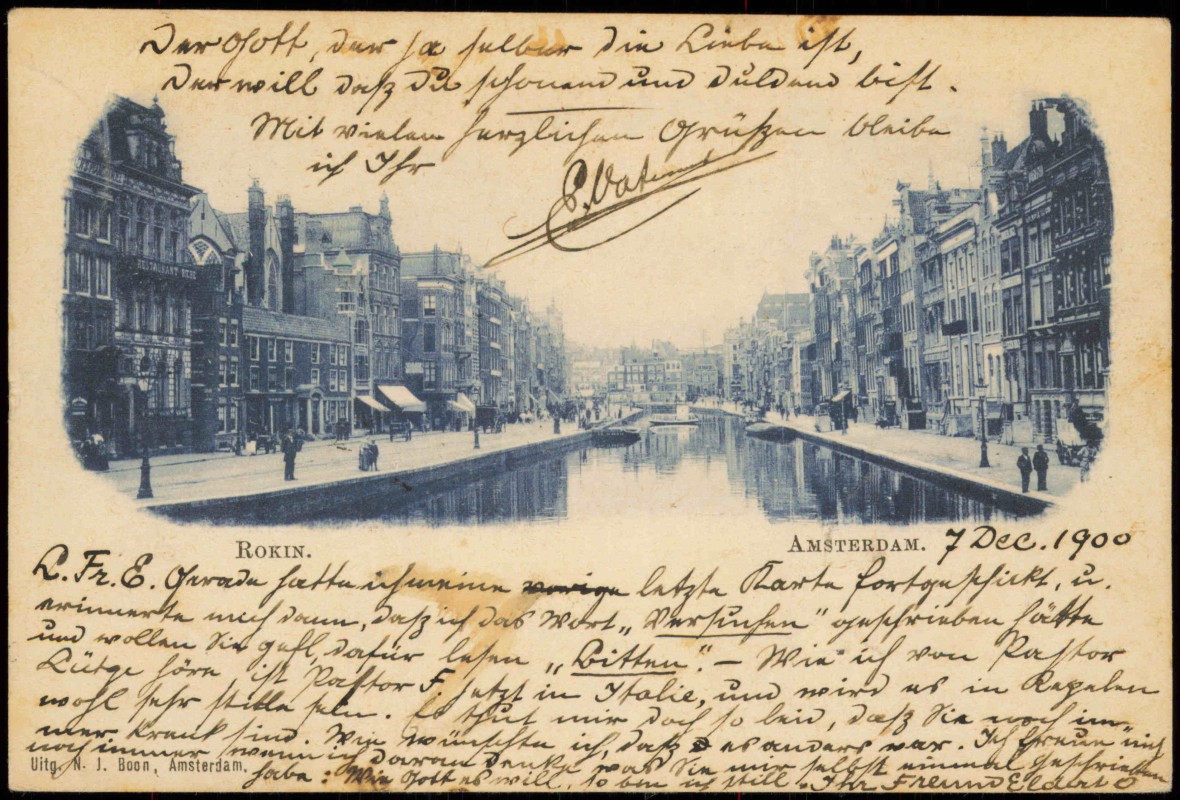 Der Gott, der ja selber die Liebe ist,
Der will daß Du schonend und duldend bist.
Mit vielen herzlichen Grüßen bleibe
ich Ihr
RESTAURANT
ROKIN.
AMSTERDAM. 7 Dec. 1900
L. Fr. E. Gerade hatte ich meine vorige letzte Karte fortgeschickt, u.
erinnerte mich dann, daß ich das Wort „Versuchen" geschrieben hätte
und wollen Sie gefl. dafür lesen „Bitten". – Wie ich von Pastor
Lütge höre ist Pastor F. jetzt in Italie, und wird es in Repelen
wohl sehr stille sein. Es thut mir doch so leid, daß Sie noch im-
mer krank sind. Wie wünschte ich, daß es anders war. Ich freue mich
noch immer wenn ich daran denke was Sie mir selbst einmal geschrieben
Uitg. N. J. Boon, Amsterdam.
habe: Wie Gott es will, so bin ich still. Ihr Freund